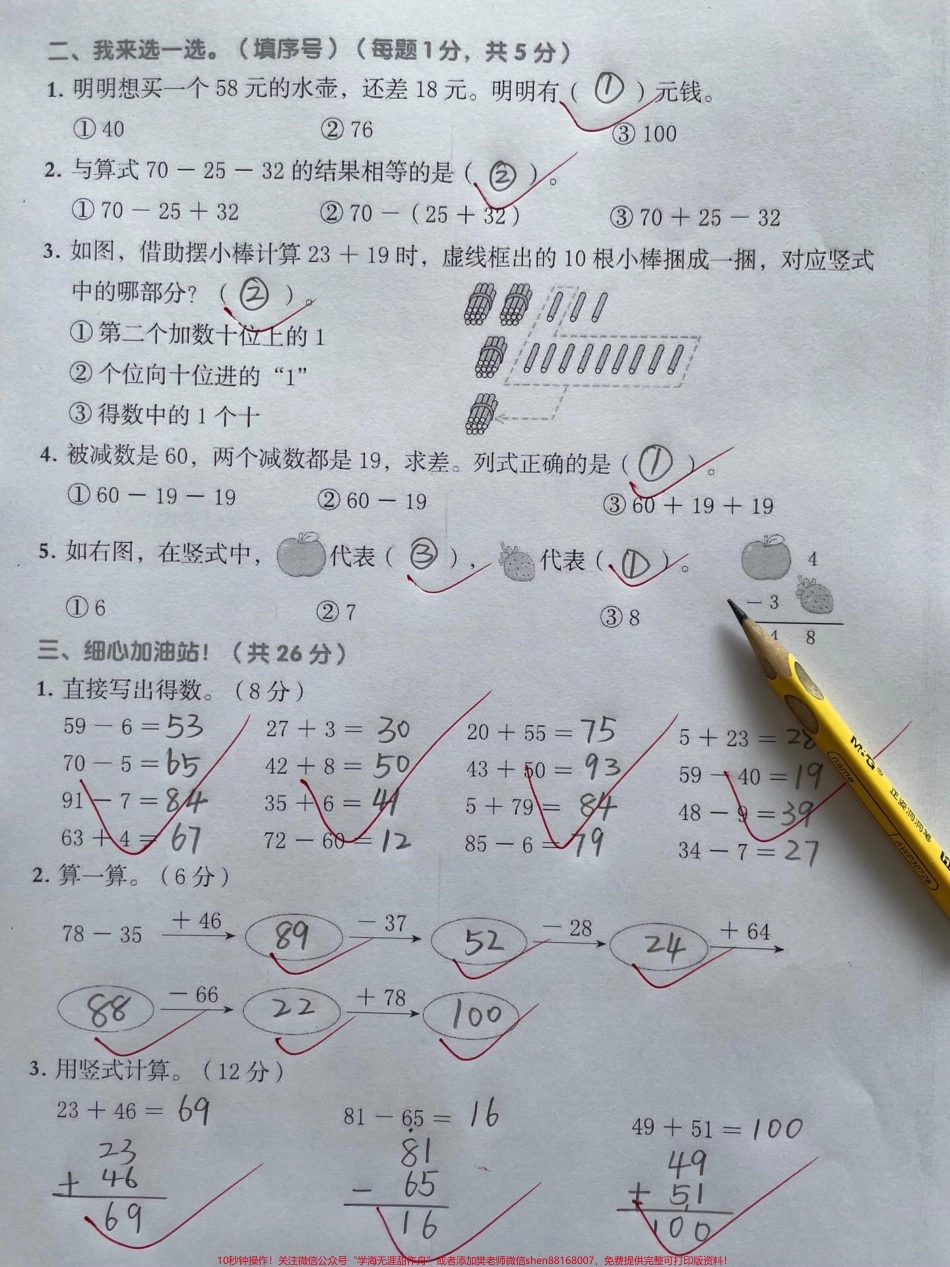 二、我来选一选。（填序号）（每题1分，共5分）
1. 明明想买一个58元的水壶，还差18元。明明有（ ① ）元钱。
① 40 ② 76 ③ 100
2. 与算式 70 － 25 － 32 的结果相等的是（ ② ）。
① 70 － 25 ＋ 32 ② 70 －（25 ＋ 32） ③ 70 ＋ 25 － 32
3. 如图，借助摆小棒计算 23 ＋ 19 时，虚线框出的 10 根小棒捆成一捆，对应竖式
中的哪部分？（ ② ）。
① 第二个加数十位上的 1
② 个位向十位进的“1”
③ 得数中的 1 个十
4. 被减数是 60，两个减数都是 19，求差。列式正确的是（ ① ）。
① 60 － 19 － 19 ② 60 － 19 ③ 60 ＋ 19 ＋ 19
5. 如右图，在竖式中， 代表（ ③ ）， 代表（ ① ）。
4
① 6 ② 7 ③ 8
－ 3
4 8
三、细心加油站！（共 26 分）
1. 直接写出得数。（8 分）
59 － 6 ＝ 53 27 ＋ 3 ＝ 30 20 ＋ 55 ＝ 75 5 ＋ 23 ＝ 28
70 － 5 ＝ 65 42 ＋ 8 ＝ 50 43 ＋ 50 ＝ 93 59 － 40 ＝ 19
91 － 7 ＝ 84 35 ＋ 6 ＝ 41 5 ＋ 79 ＝ 84 48 － 9 ＝ 39
63 ＋ 4 ＝ 67 72 － 60 ＝ 12 85 － 6 ＝ 79 34 － 7 ＝ 27
M&G
name
正姿洞洞笔
2. 算一算。（6 分）
78 － 35 ＋ 46 89 － 37 52 － 28 24 ＋ 64
88 － 66 22 ＋ 78 100
3. 用竖式计算。（12 分）
23 ＋ 46 ＝ 69 81 － 65 ＝ 16 49 ＋ 51 ＝ 100
23 81 49
＋ 46 － 65 ＋ 51
69 16 100
10秒钟操作！关注微信公众号“学海无涯甜作舟”或者添加樊老师微信shen88168007，免费提供完整可打印版资料！